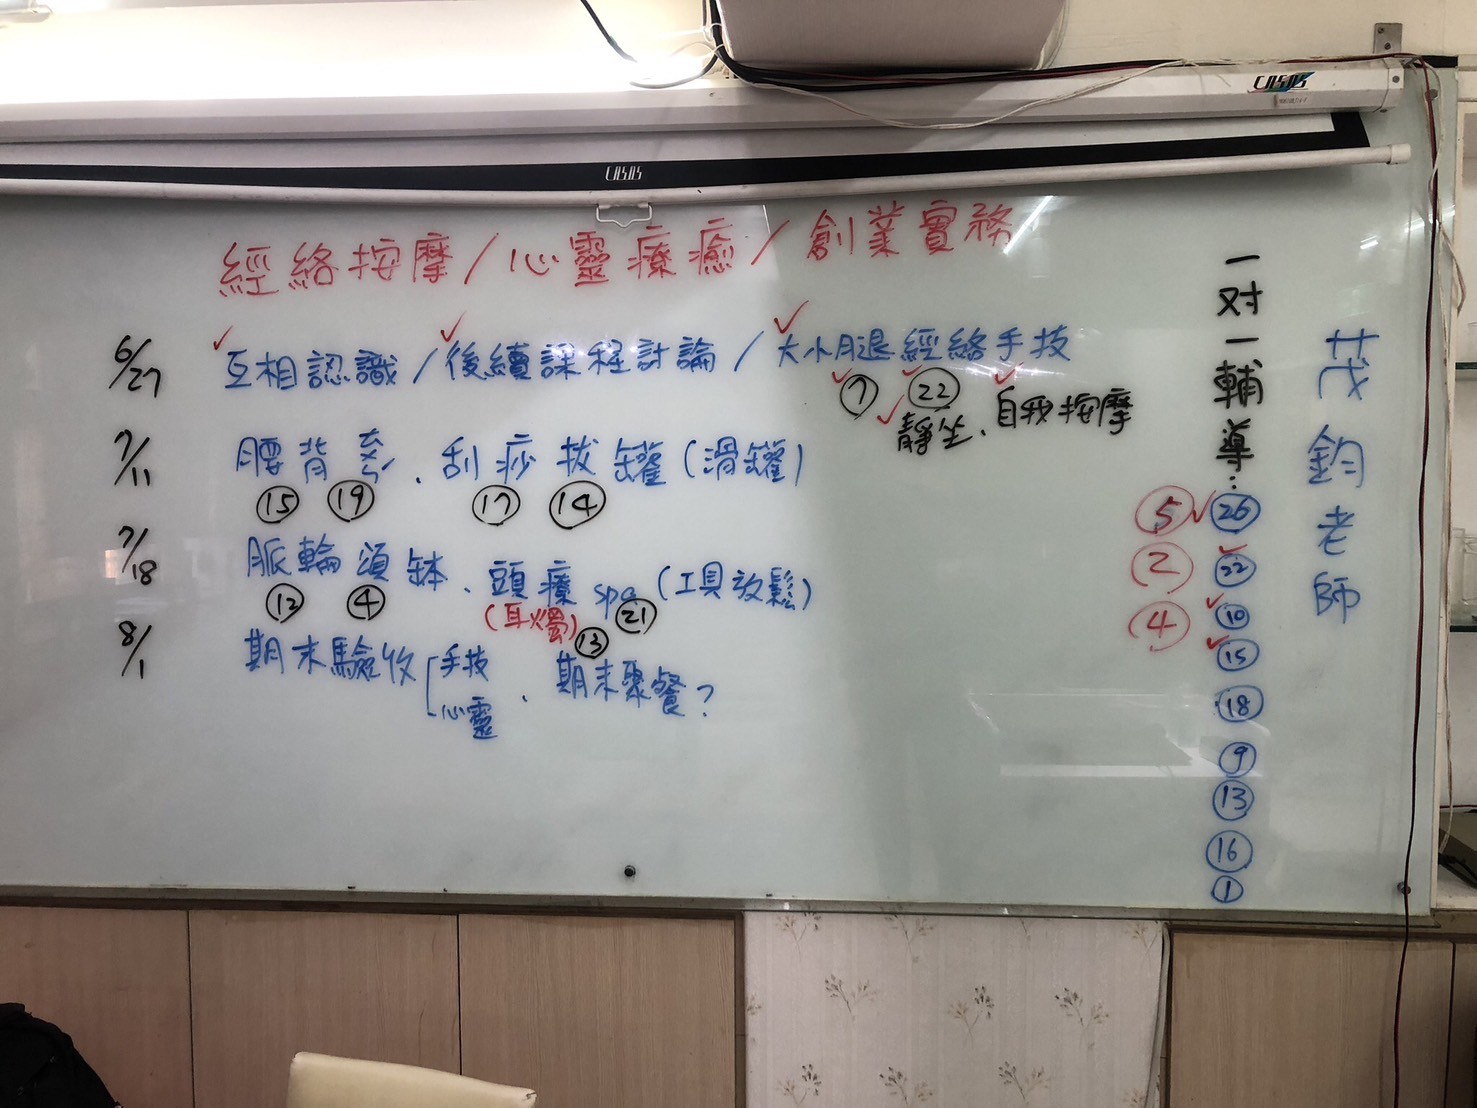 CASOS
CASOS
經絡按摩/心靈療癒/創業實務
6/27 ✓互相認識/✓後續課程討論/✓大小腿經絡手技
✓⑦ ✓㉒ ✓靜坐、✓自我按摩
7/11 腰背 、刮痧拔罐(滑罐)
⑮ ⑲ ⑰ ⑭
7/18 脈輪頌缽、頭療spa(工具放鬆)
⑫ ④ (耳燭) ⑬ ㉑
8/1 期末驗收[手技 心靈、期末聚餐?
一对一輔導:
⑤ ✓㉖
② ✓㉒
④ ✓⑩
✓⑮
⑱
⑨
⑬
⑯
①
茂鈞老師